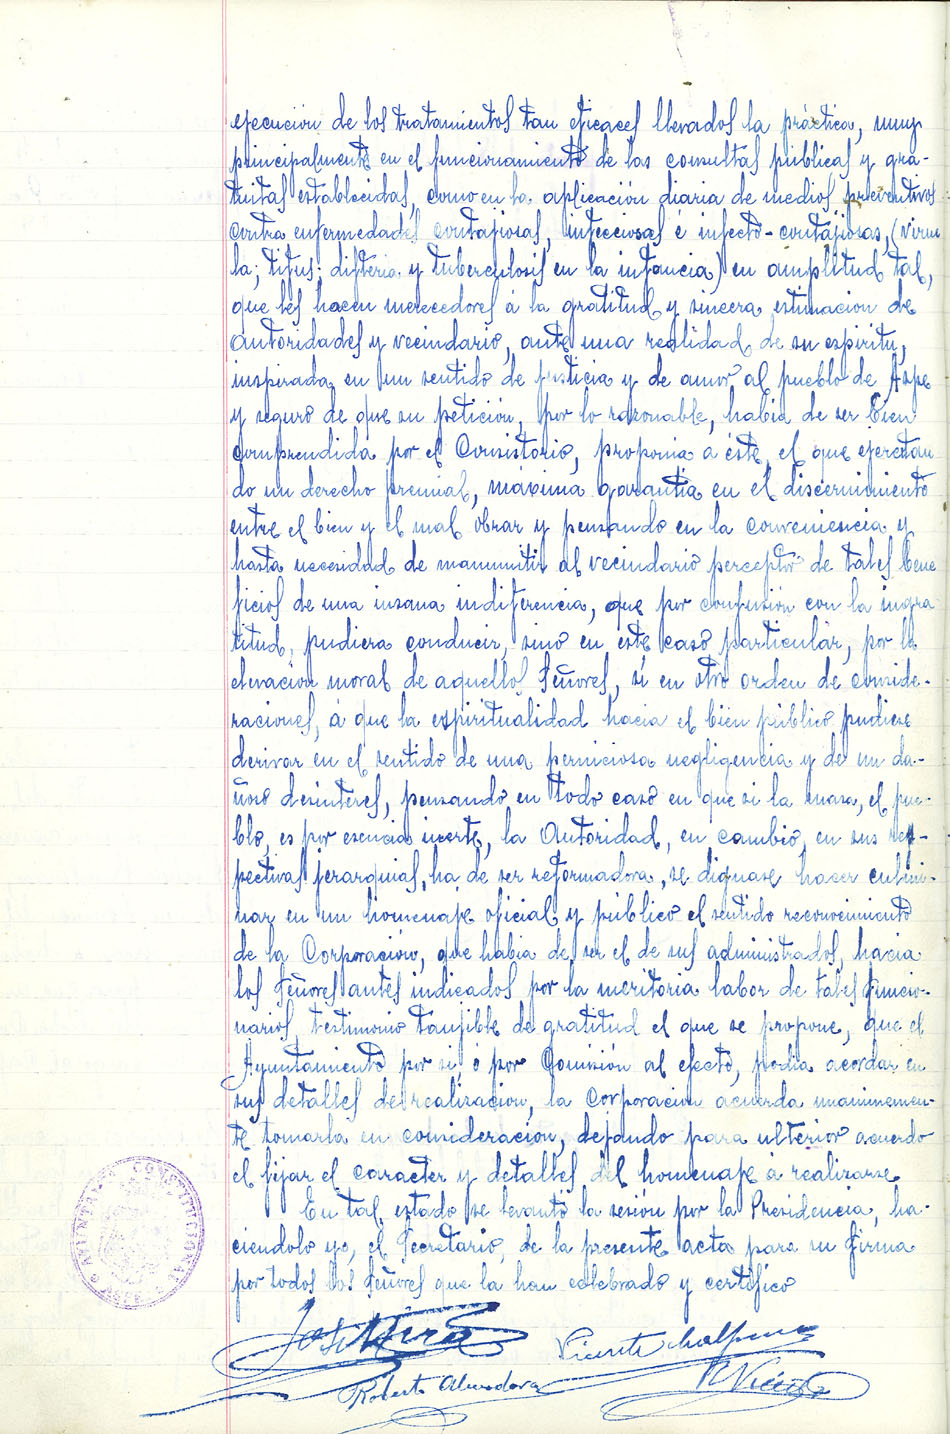 ejecución de los tratamientos tan eficaces llevados la práctica, muy
principalmente en el funcionamiento de las consultas públicas y gra-
tuitas establecidas, como en la aplicación diaria de medios preventivos
contra enfermedades contajiosas, infecciosas é infecto-contajiosas, (virue
la; tifus; difteria y tuberculosis en la infancia) en amplitud tal,
que les hacen merecedores á la gratitud y sincera estimacion de
Autoridades y vecindario, ante una realidad de su espíritu,
inspirada en un sentido de justicia y de amor al pueblo de Aspe
y seguro de que su petición, por lo razonable, había de ser bien
comprendida por el Consistorio, proponia a éste, el que ejercitan-
do un derecho premial, máxima garantía en el discernimiento
entre el bien y el mal obrar y pensando en la conveniencia y
hasta necesidad de manumitir al vecindario perceptor de tales bene
ficios de una insana indiferencia, que por confusión con la ingra
titud, pudiera conducir, sino en este caso particular, por la
elevación moral de aquellos Señores, sí en otro orden de conside-
raciones, á que la espiritualidad hacia el bien público pudiese
derivar en el sentido de una perniciosa negligencia y de un da-
ñoso desinterés, pensando en todo caso en que si la masa, el pue-
blo, es por esencia inerte, la Autoridad, en cambio, en sus res-
pectivas jerarquias, ha de ser reformadora, se dignase hacer culmi-
nar en un homenaje oficial y público el sentido reconocimiento
de la Corporación, que había de ser el de sus administrados, hacia
los Señores antes indicados por la meritoria labor de tales funcio-
narios, testimonio tanjible de gratitud el que se propone, que el
Ayuntamiento por si, ó por Comisión al efecto, podía acordar en
sus detalles de realizacion, la Corporacion acuerda unanimemen-
te tomarla en consideracion, dejando para ulterior acuerdo
el fijar el caracter y detalles del homenaje á realizarse.
En tal estado se levantó la sesión por la Presidencia, ha-
ciendolo yo, el Secretario, de la presente acta para su firma
por todos los Señores que la han celebrado y certifico
José Mira
Vicente
Roberto Almodovar
AYUNTAMTO. CONSTITUCIONAL
ASPE